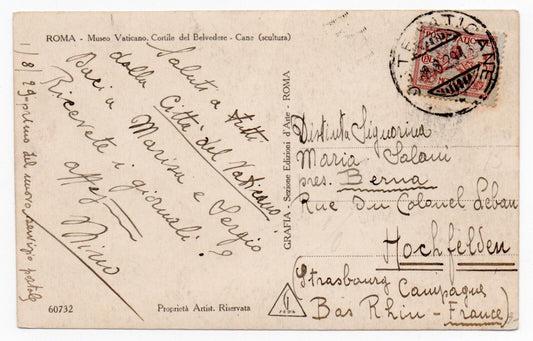 ROMA - Museo Vaticano. Cortile del Belvedere - Cane (scultura)
1/8/29 - primo del nuovo servizio postale
Saluti a tutti
dalla Città del Vaticano!
Baci a Marisa e Sergio
Ricevete i giornali?
affez
Nino
60732
Proprietà Artist. Riservata
GRAFIA - Sezione Edizioni d'Arte - ROMA
Distinta Signorina
Maria Salani
pres. Berna
Rue Du Colonel Leban
Hochfelden
(Strasbourg Campagne
Bas Rhin - France)